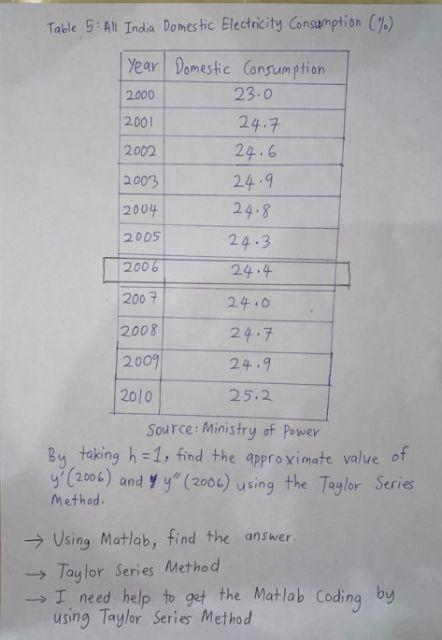 Table 5: All India Domestic Electricity Consumption (%)
Year Domestic Consumption
2000 23.0
2001 24.7
2002 24.6
2003 24.9
2004 24.8
2005 24.3
2006 24.4
2007 24.0
2008 24.7
2009 24.9
2010 25.2
Source: Ministry of Power
By taking h = 1, find the approximate value of
y'(2006) and y''(2006) using the Taylor Series
Method.
→ Using Matlab, find the answer.
→ Taylor Series Method
→ I need help to get the Matlab Coding by
using Taylor Series Method